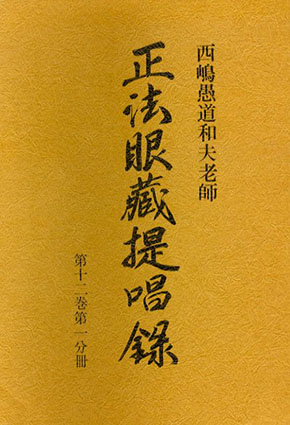 西嶋愚道和夫老師
正法眼藏提唱録
第十二巻第一分冊